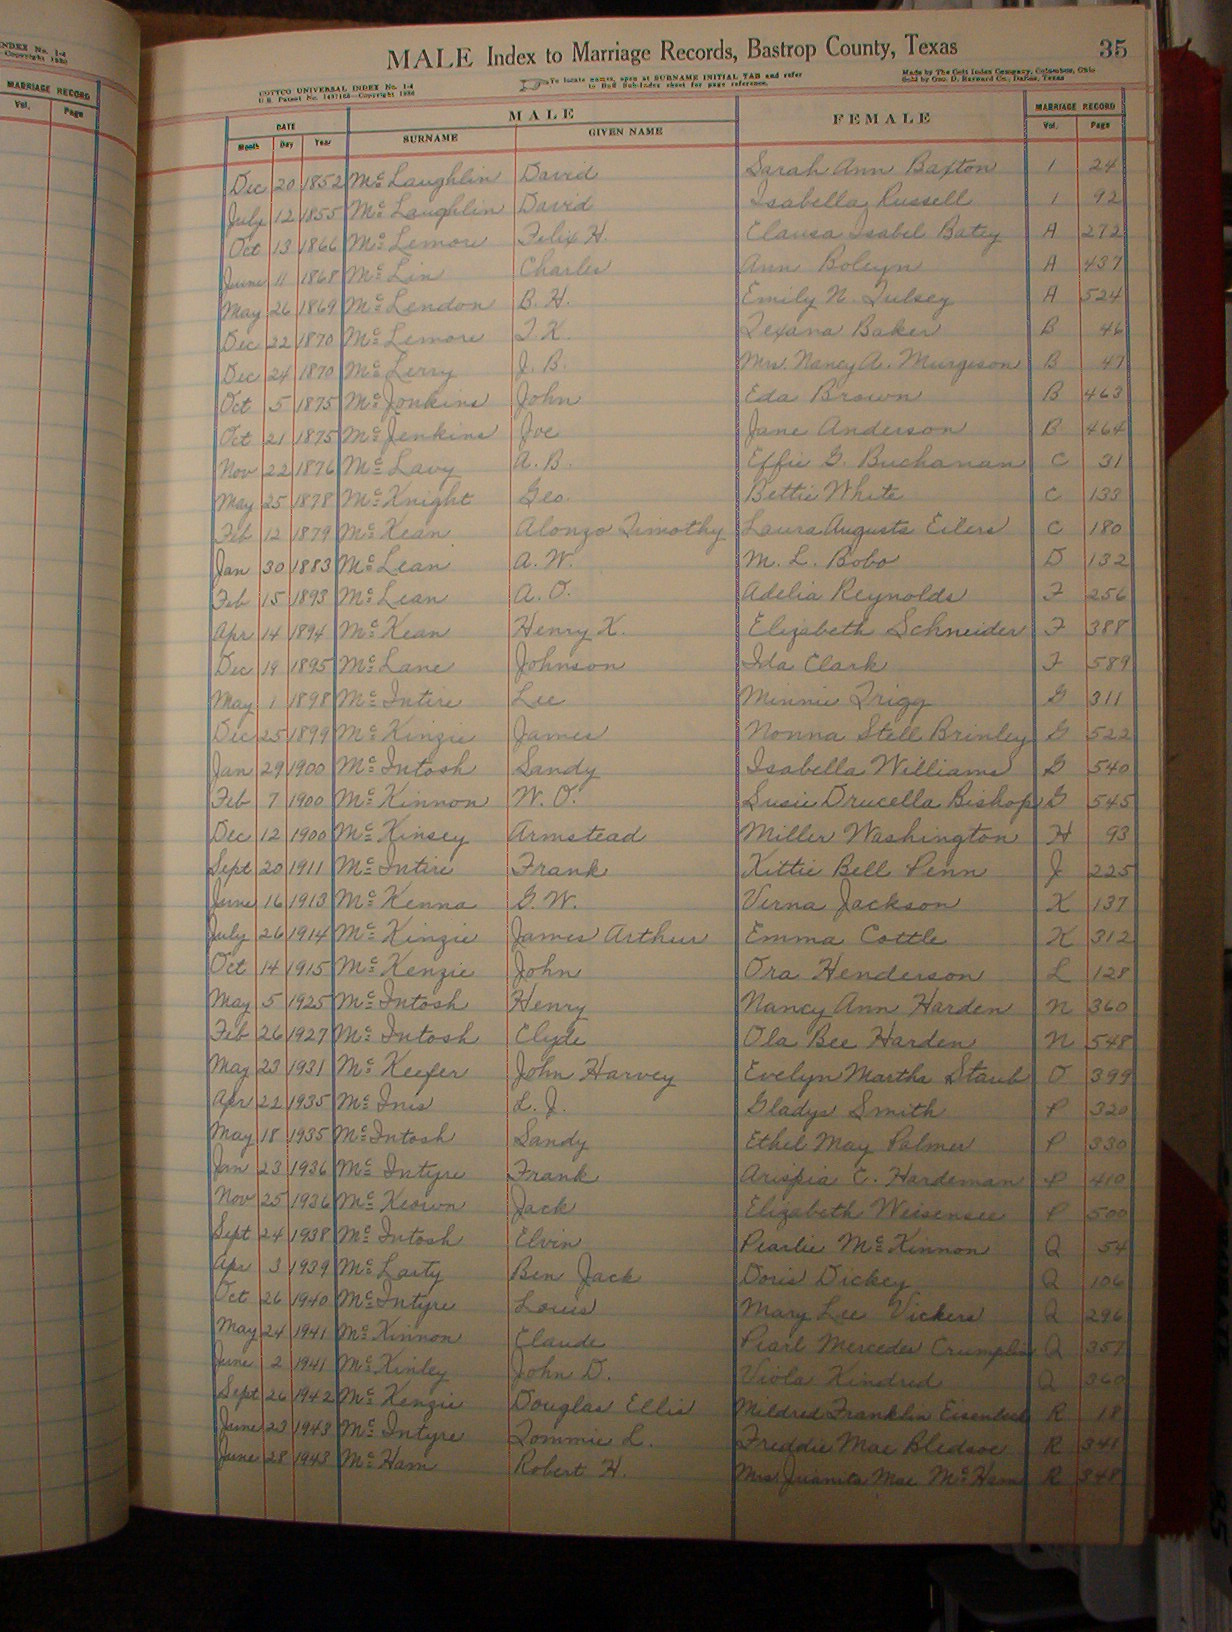 INDEX No. 1-4
Copyright 1930
MARRIAGE RECORD
Vol. Page
MALE Index to Marriage Records, Bastrop County, Texas 35
COTTCO UNIVERSAL INDEX No. 1-4
U.S. Patent No. 1497168—Copyright 1930
To locate names, open at SURNAME INITIAL TAB and refer
to Buff Sub-Index sheet for page reference.
Made by The Cott Index Company, Columbus, Ohio
Sold by Geo. D. Barnard Co., Dallas, Texas
DATE MALE FEMALE MARRIAGE RECORD
Month Day Year SURNAME GIVEN NAME Vol. Page
Dec 20 1852 Mc Laughlin David Sarah Ann Baxton 1 24
July 12 1855 Mc Laughlin David Isabella Russell 1 92
Oct 13 1866 Mc Lemore Felix H. Elausa Isabel Batey A 272
June 11 1868 Mc Lin Charles Ann Boleyn A 437
May 26 1869 Mc Lendon B. H. Emily N. Tulsey A 524
Dec 22 1870 Mc Lemore T. K. Texana Baker B 46
Dec 24 1870 Mc Lerry J. B. Mrs. Nancy A. Murgeson B 47
Oct 5 1875 Mc Jonkins John Eda Brown B 463
Oct 21 1875 Mc Jenkins Joe Jane Anderson B 464
Nov 22 1876 Mc Lavy A. B. Effie G. Buchanan C 31
May 25 1878 Mc Knight Geo. Bettie White C 133
Feb 12 1879 Mc Kean Alonzo Timothy Laura Augusta Eilers C 180
Jan 30 1883 Mc Lean A. W. M. L. Bobo D 132
Feb 15 1893 Mc Lean A. O. Adelia Reynolds F 256
Apr 14 1894 Mc Kean Henry K. Elizabeth Schneider F 388
Dec 19 1895 Mc Lane Johnson Ida Clark F 589
May 1 1898 Mc Intire Lee Minnie Trigg G 311
Dec 25 1899 Mc Kinzie James Nonna Stell Brinley G 522
Jan 29 1900 Mc Intosh Sandy Isabella Williams G 540
Feb 7 1900 Mc Kinnon W. O. Susie Drucella Bishop G 545
Dec 12 1900 Mc Kinsey Armstead Miller Washington H 93
Sept 20 1911 Mc Intire Frank Kittie Bell Penn J 225
June 16 1913 Mc Kenna G. W. Verna Jackson K 137
July 26 1914 Mc Kinzie James Arthur Emma Cottle K 312
Oct 14 1915 Mc Kenzie John Ora Henderson L 128
May 5 1925 Mc Intosh Henry Nancy Ann Harden N 360
Feb 26 1927 Mc Intosh Clyde Ola Bee Harden N 548
May 23 1931 Mc Keefer John Harvey Evelyn Martha Staub O 399
Apr 21 1935 Mc Inis L. J. Gladys Smith P 320
May 18 1935 Mc Intosh Sandy Ethel May Palmer P 330
Jan 23 1936 Mc Intyre Frank Arispia C. Hardeman P 410
Nov 25 1936 Mc Keown Jack Elizabeth Weisensee P 500
Sept 24 1938 Mc Intosh Elvin Pearlie Mc Kinnon Q 54
Apr 3 1939 Mc Larty Ben Jack Doris Dickey Q 106
Oct 26 1940 Mc Intyre Louis Mary Lee Vickers Q 296
May 24 1941 Mc Kinnon Claude Pearl Mercedes Q 357
June 2 1941 Mc Kinley John D. Viola Kindred Q 360
Sept 26 1942 Mc Kenzie Douglas Ellis Mildred Franklin R 18
June 23 1943 Mc Intyre Tommie L. Freddie Mae Bledsoe R 341
June 28 1943 Mc Ham Robert H. Mrs Juanita Mae Mc Ham R 348